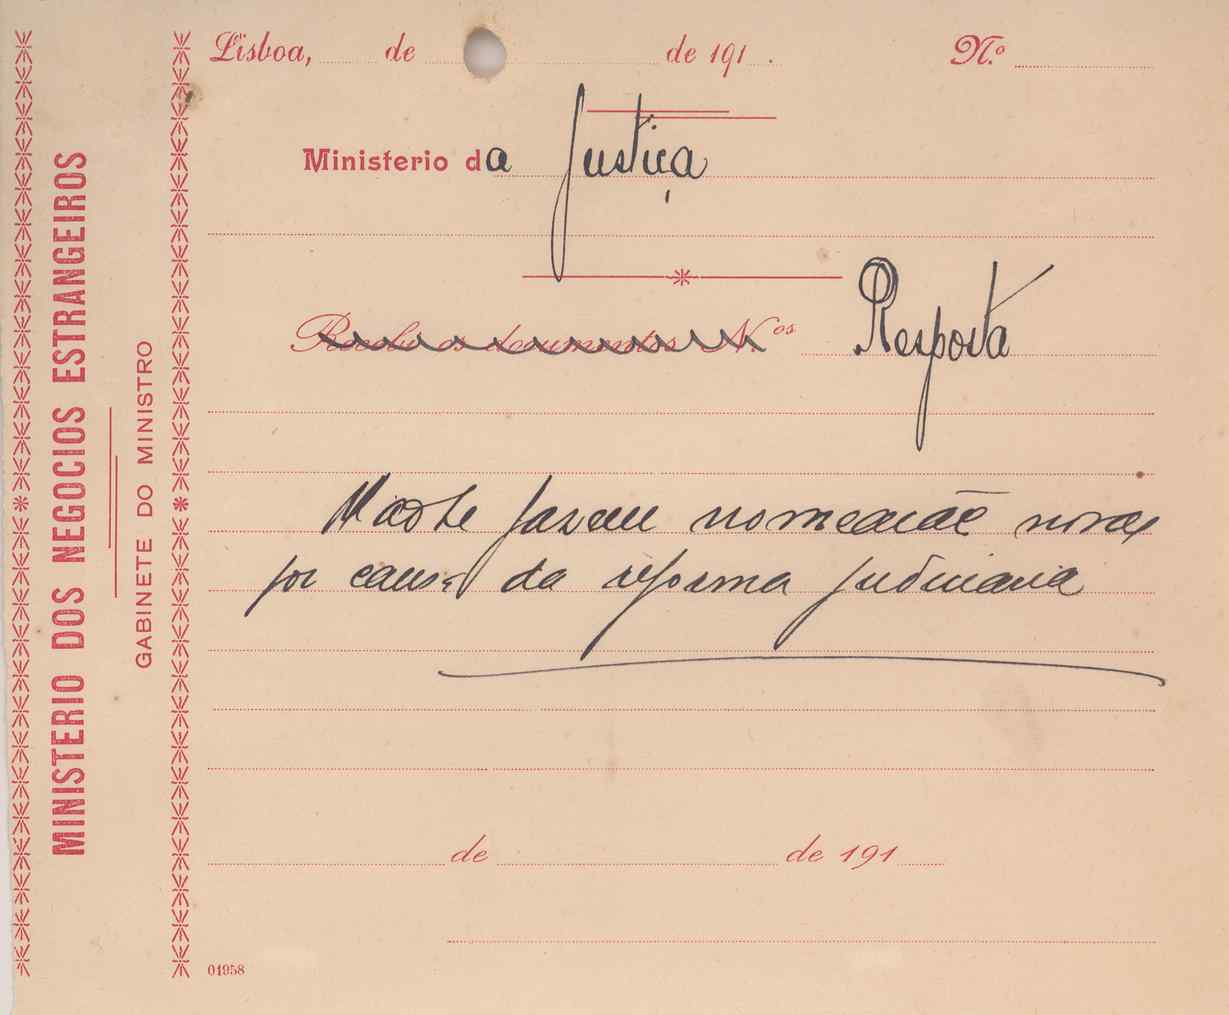 MINISTERIO DOS NEGOCIOS ESTRANGEIROS
GABINETE DO MINISTRO
Lisboa, de de 191 . N.º
Ministerio da Justiça
Recebi os documentos N.os Resposta
fazem nomeação novas
por causa da reforma judiciaria
de de 191
01958